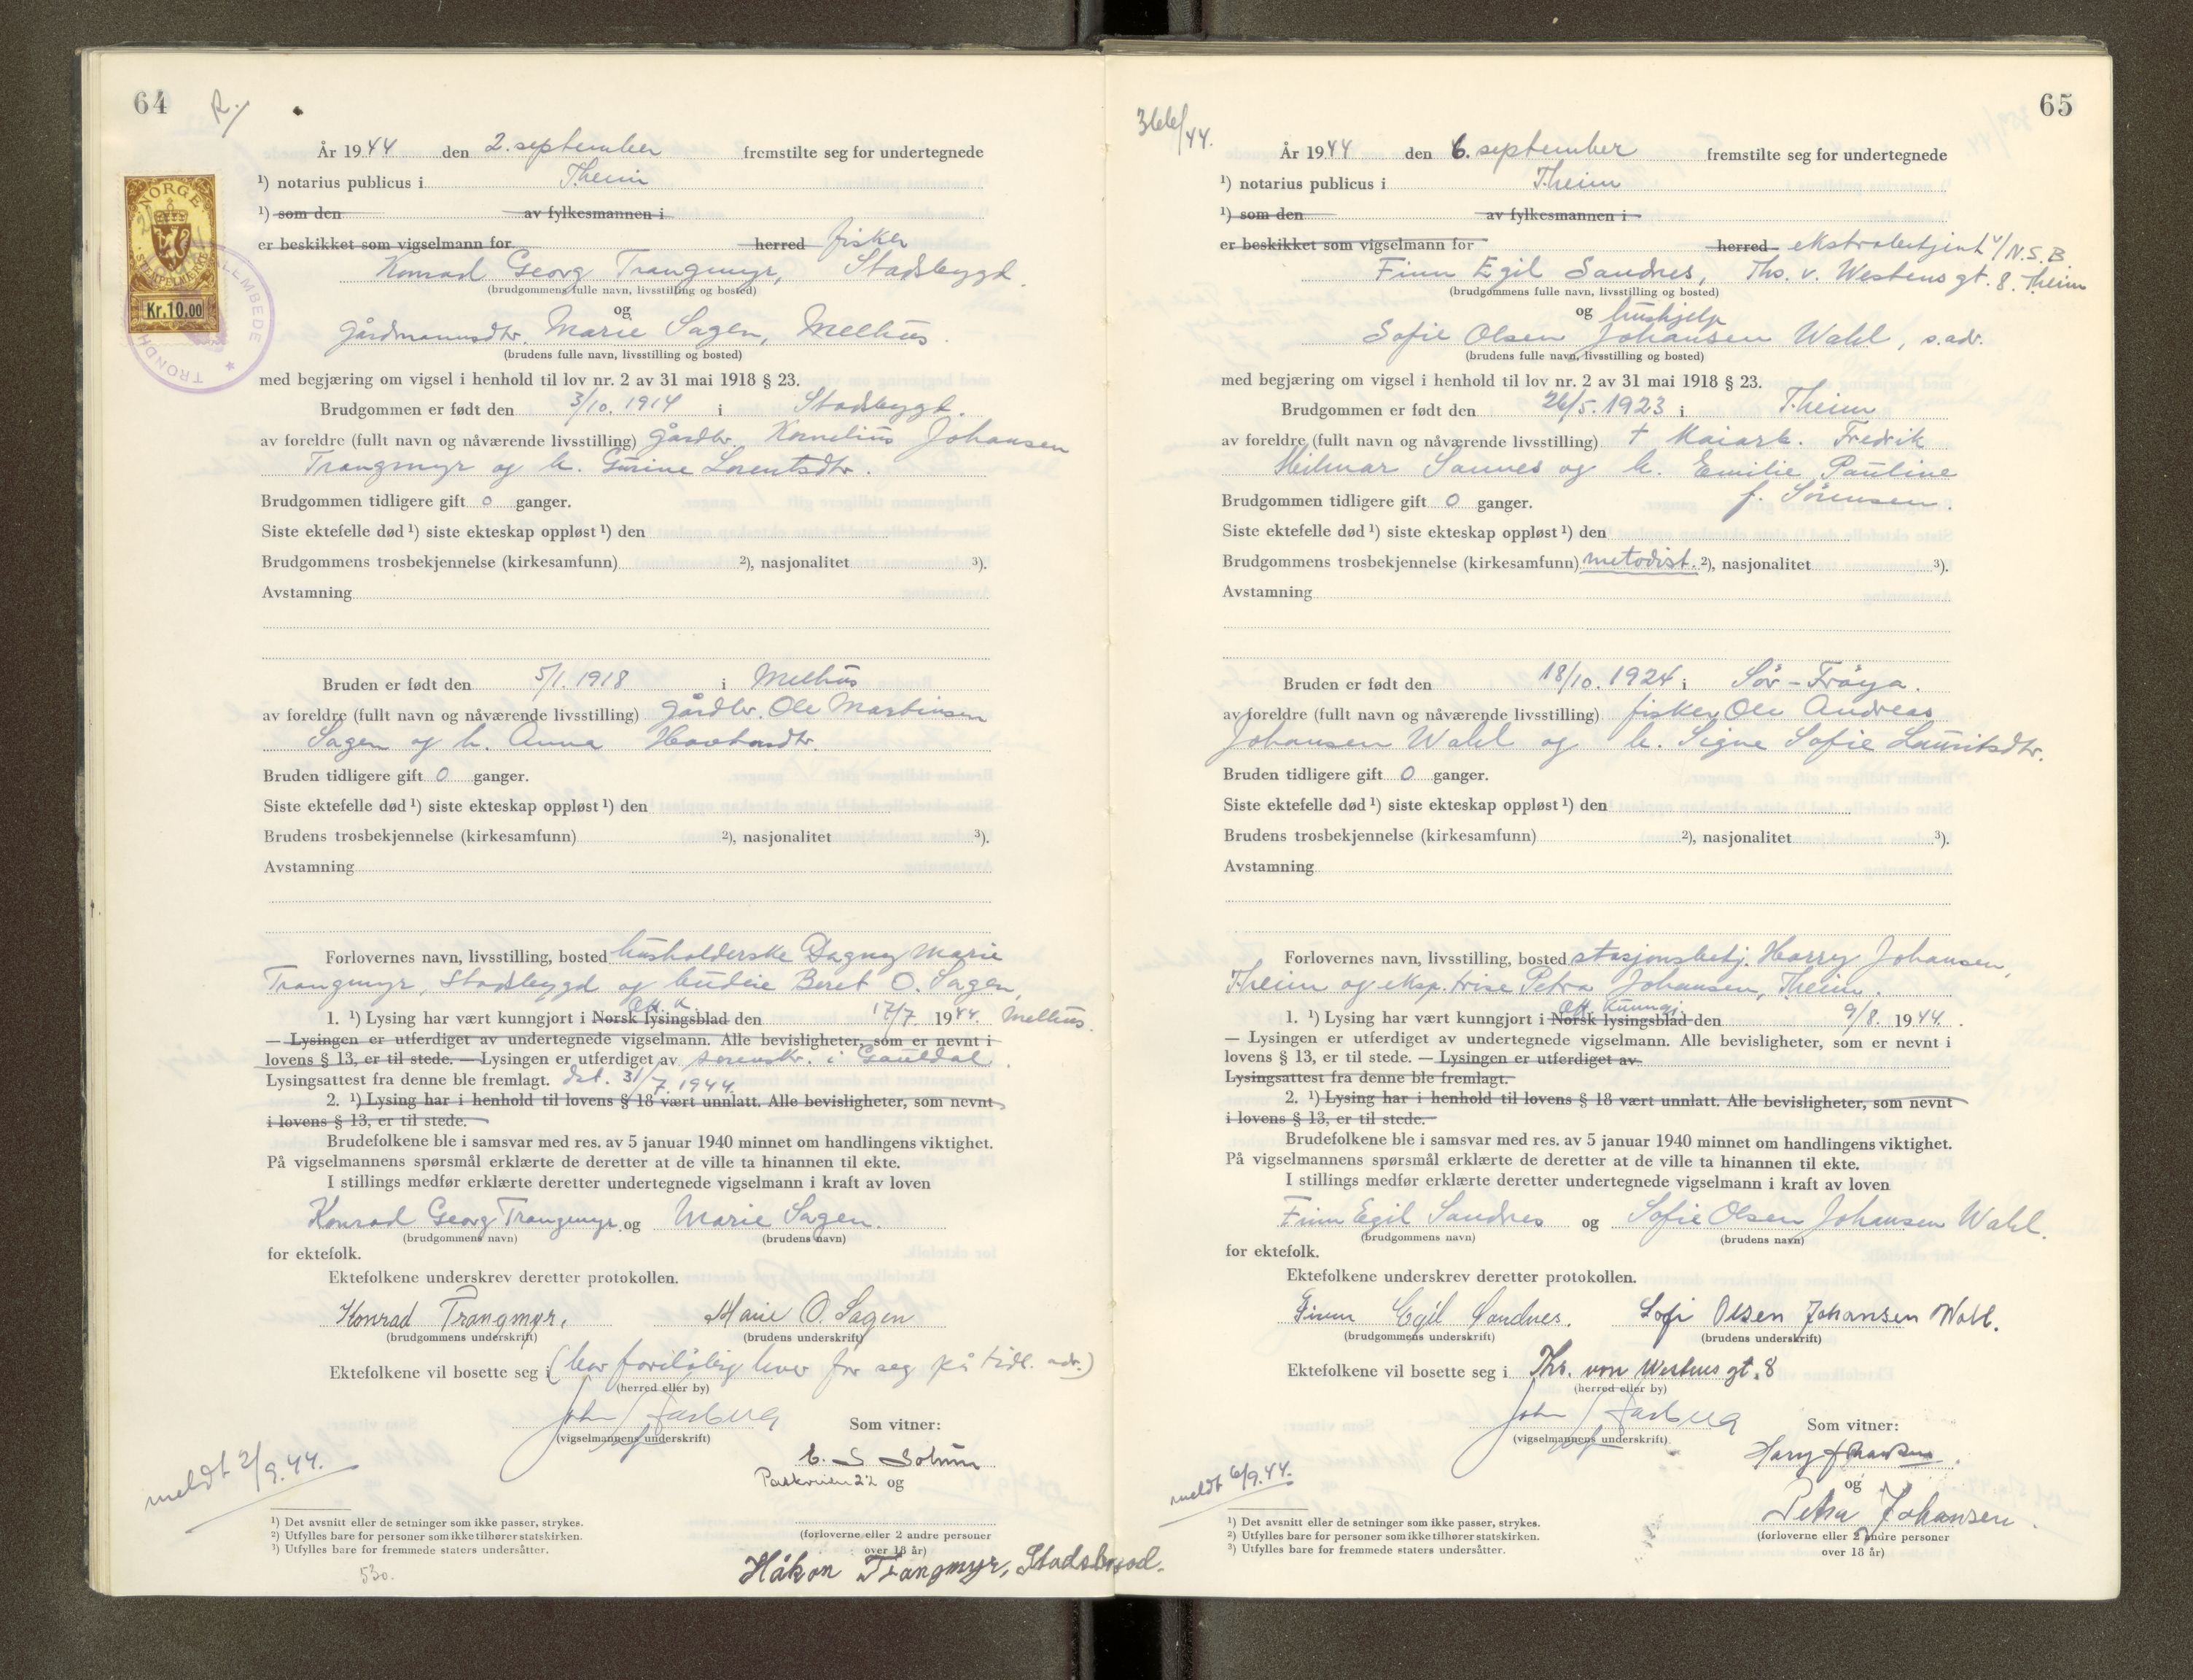 64
R./
År 1944 den 2. september fremstilte seg for undertegnede
¹) notarius publicus i T.heim
¹) som den av fylkesmannen i
er beskikket som vigselmann for herred fisker
Konrad Georg Trangmyr, Stadsbygd.
(brudgommens fulle navn, livsstilling og bosted)
og
gårdmannsdtr. Marie Sagen, Melhus.
(brudens fulle navn, livsstilling og bosted)
NORGE
STEMPELMERKE
Kr.10.00
med begjæring om vigsel i henhold til lov nr. 2 av 31 mai 1918 § 23.
Brudgommen er født den 3/10. 1914 i Stadsbygd.
av foreldre (fullt navn og nåværende livsstilling) gårdbr. Kornelius Johansen
Trangmyr og h. Gurine Lorentsdtr.
Brudgommen tidligere gift 0 ganger.
Siste ektefelle død ¹) siste ekteskap oppløst ¹) den
Brudgommens trosbekjennelse (kirkesamfunn) ²), nasjonalitet ³).
Avstamning
Bruden er født den 5/1. 1918 i Melhus
av foreldre (fullt navn og nåværende livsstilling) gårdbr. Ole Martinsen
Sagen og h. Anna
Bruden tidligere gift 0 ganger.
Siste ektefelle død ¹) siste ekteskap oppløst ¹) den
Brudens trosbekjennelse (kirkesamfunn) ²), nasjonalitet ³).
Avstamning
Forlovernes navn, livsstilling, bosted husholderske Dagny Marie
Trangmyr, Stadsbygd og budeie Beret O. Sagen,
Off. k.
1. ¹) Lysing har vært kunngjort i Norsk lysingsblad den 17/7. 1944. Melhus.
— Lysingen er utferdiget av undertegnede vigselmann. Alle bevisligheter, som er nevnt i
lovens § 13, er til stede. — Lysingen er utferdiget av sorenskr. i Gauldal.
Lysingsattest fra denne ble fremlagt. dat. 31/7. 1944.
2. ¹) Lysing har i henhold til lovens § 18 vært unnlatt. Alle bevisligheter, som nevnt
i lovens § 13, er til stede.
Brudefolkene ble i samsvar med res. av 5 januar 1940 minnet om handlingens viktighet.
På vigselmannens spørsmål erklærte de deretter at de ville ta hinannen til ekte.
I stillings medfør erklærte deretter undertegnede vigselmann i kraft av loven
Konrad Georg Trangmyr og Marie Sagen.
(brudgommens navn) (brudens navn)
for ektefolk.
Ektefolkene underskrev deretter protokollen.
Konrad Trangmyr. Marie O. Sagen
(brudgommens underskrift) (brudens underskrift)
Ektefolkene vil bosette seg i (bor foreløbig hver for seg på tidl. adr.)
(herred eller by)
Som vitner:
(vigselmannens underskrift)
E. S. Solum
22 og
meldt 2/9.44.
¹) Det avsnitt eller de setninger som ikke passer, strykes.
²) Utfylles bare for personer som ikke tilhører statskirken.
³) Utfylles bare for fremmede staters undersåtter.
(forloverne eller 2 andre personer
over 18 år)
Håkon Trangmyr,
530.
65
366/44.
År 1944 den 6. september fremstilte seg for undertegnede
¹) notarius publicus i T.heim
¹) som den av fylkesmannen i
er beskikket som vigselmann for herred ekstrabetjent v/N.S.B
Finn Egil Sandnes, Ths. v. Westens gt. 8. T.heim
(brudgommens fulle navn, livsstilling og bosted)
og hushjelp
Sofie Olsen Johansen Wahl, s.adr.
(brudens fulle navn, livsstilling og bosted)
med begjæring om vigsel i henhold til lov nr. 2 av 31 mai 1918 § 23.
Brudgommen er født den 26/5. 1923 i T.heim
av foreldre (fullt navn og nåværende livsstilling) † Kaiarb. Fredrik
Hilmar Sannes og h. Emilie Pauline
Brudgommen tidligere gift 0 ganger. f. Sörensen.
Siste ektefelle død ¹) siste ekteskap oppløst ¹) den
Brudgommens trosbekjennelse (kirkesamfunn) metodist. ²), nasjonalitet ³).
Avstamning
Bruden er født den 18/10. 1924 i Sör-Fröya.
av foreldre (fullt navn og nåværende livsstilling) fisker Ole Andreas
Johansen Wahl og h. Signe Sofie Lauritsdtr.
Bruden tidligere gift 0 ganger.
Siste ektefelle død ¹) siste ekteskap oppløst ¹) den
Brudens trosbekjennelse (kirkesamfunn) ²), nasjonalitet ³).
Avstamning
Forlovernes navn, livsstilling, bosted stasjonsbetj. Harry Johansen,
T.heim og eksp.trise Petra Johansen, T.heim.
Off. kunngj.
1. ¹) Lysing har vært kunngjort i Norsk lysingsblad den 9/8. 1944.
— Lysingen er utferdiget av undertegnede vigselmann. Alle bevisligheter, som er nevnt i
lovens § 13, er til stede. — Lysingen er utferdiget av
Lysingsattest fra denne ble fremlagt.
2. ¹) Lysing har i henhold til lovens § 18 vært unnlatt. Alle bevisligheter, som nevnt
i lovens § 13, er til stede.
Brudefolkene ble i samsvar med res. av 5 januar 1940 minnet om handlingens viktighet.
På vigselmannens spørsmål erklærte de deretter at de ville ta hinannen til ekte.
I stillings medfør erklærte deretter undertegnede vigselmann i kraft av loven
Finn Egil Sandnes og Sofie Olsen Johansen Wahl.
(brudgommens navn) (brudens navn)
for ektefolk.
Ektefolkene underskrev deretter protokollen.
Finn Egil Sandnes. Sofi Olsen Johansen Wahl.
(brudgommens underskrift) (brudens underskrift)
Ektefolkene vil bosette seg i Ths. von Westens gt. 8
(herred eller by)
Som vitner:
(vigselmannens underskrift)
Harry Johansen.
og
Petra Johansen.
meldt 6/9.44.
¹) Det avsnitt eller de setninger som ikke passer, strykes.
²) Utfylles bare for personer som ikke tilhører statskirken.
³) Utfylles bare for fremmede staters undersåtter.
(forloverne eller 2 andre personer
over 18 år)